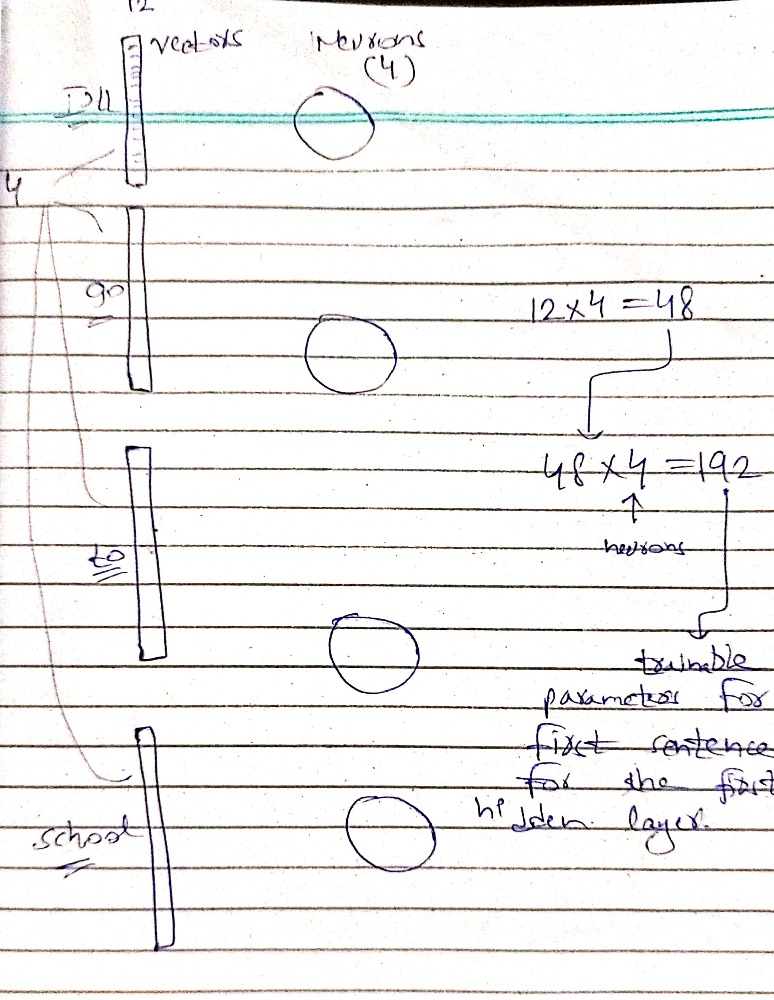 12
vectors
Neurons
(4)
I'll
4
go
12 x 4 = 48
48 x 4 = 192
neurons
to
trainable
parameters for
first sentence
for the first
hidden layer.
school